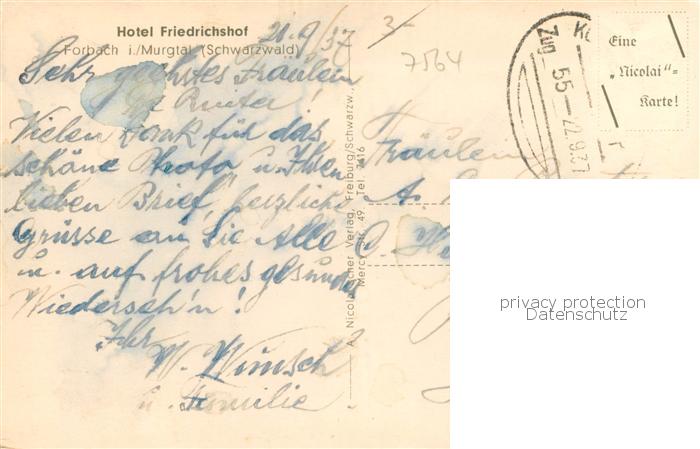 Hotel Friedrichshof
Forbach i./Murgtal (Schwarzwald)
21.9/37
7564
Zug 55 22.9.37
Eine
„Nicolai"=
Karte!
Sehr geehrtes Fräulein
Vielen Dank für das
schöne Photo u. Ihren
lieben Brief, herzliche
Grüsse an Sie Alle
u. auf frohes gesundes
Wiederseh'n!
Ihr
W. Wünsch
u. Familie
Freiburg/Schwarzw.,
Tel. 7416
Fräulein
privacy protection
Datenschutz